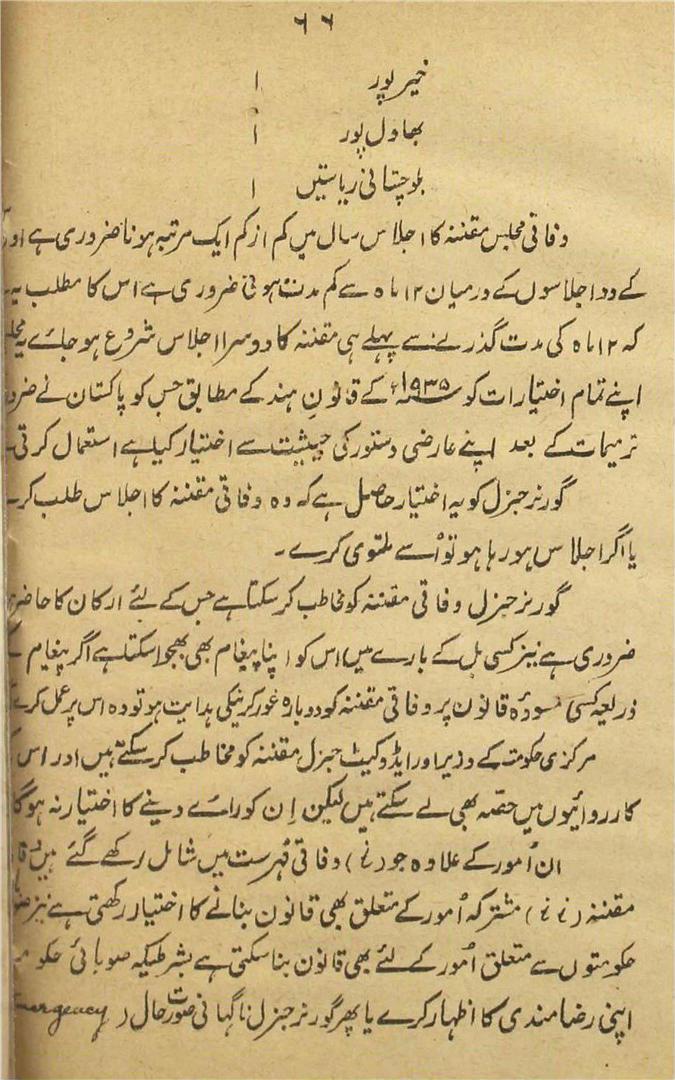 ۶۶
خیرپور ۱
بھاول پور ۱
بلوچستانی ریاستیں ۱
وفاقی مجلس مقننہ کا اجلاس سال میں کم از کم ایک مرتبہ ہونا ضروری ہے اور
کے دو اجلاسوں کے درمیان ۱۲ ماہ سے کم مدت ہونی ضروری ہے اس کا مطلب یہ
کہ ۱۲ ماہ کی مدت گذرنے سے پہلے ہی مقننہ کا دوسرا اجلاس شروع ہو جائے یہ
اپنے تمام اختیارات کو ۱۹۳۵ء کے قانونِ ہند کے مطابق جس کو پاکستان نے
ترمیمات کے بعد اپنے عارضی دستور کی حیثیت سے اختیار کیا ہے استعمال کرتی
گورنر جنرل کو یہ اختیار حاصل ہے کہ وہ وفاقی مقننہ کا اجلاس طلب کرے
یا اگر اجلاس ہو رہا ہو تو اُسے ملتوی کرے ۔
گورنر جنرل وفاقی مقننہ کو مخاطب کر سکتا ہے جس کے لئے ارکان کا حاضر
ضروری ہے نیز کسی بل کے بارے میں اس کو اپنا پیغام بھی بھجوا سکتا ہے اگر پیغام کے
ذریعہ کسی مسودۂ قانون پر وفاقی مقننہ کو دوبارہ غور کرنیکی ہدایت ہو تو وہ اس پر عمل کرے
مرکزی حکومت کے وزیر اور ایڈوکیٹ جنرل مقننہ کو مخاطب کر سکتے ہیں اور اس
کارروائیوں میں حصہ بھی لے سکتے ہیں لیکن اِن کو رائے دینے کا اختیار نہ ہوگا
ان اُمور کے علاوہ جو ( ) وفاقی فہرست میں شامل رکھے گئے ہیں
مقننہ ( ) مشترکہ اُمور کے متعلق بھی قانون بنانے کا اختیار رکھتی ہے نیز
حکومتوں سے متعلق اُمور کے لئے بھی قانون بنا سکتی ہے بشرطیکہ صوبائی
اپنی رضامندی کا اظہار کرے یا پھر گورنر جنرل ناگہانی صورت حال ( Emergency )